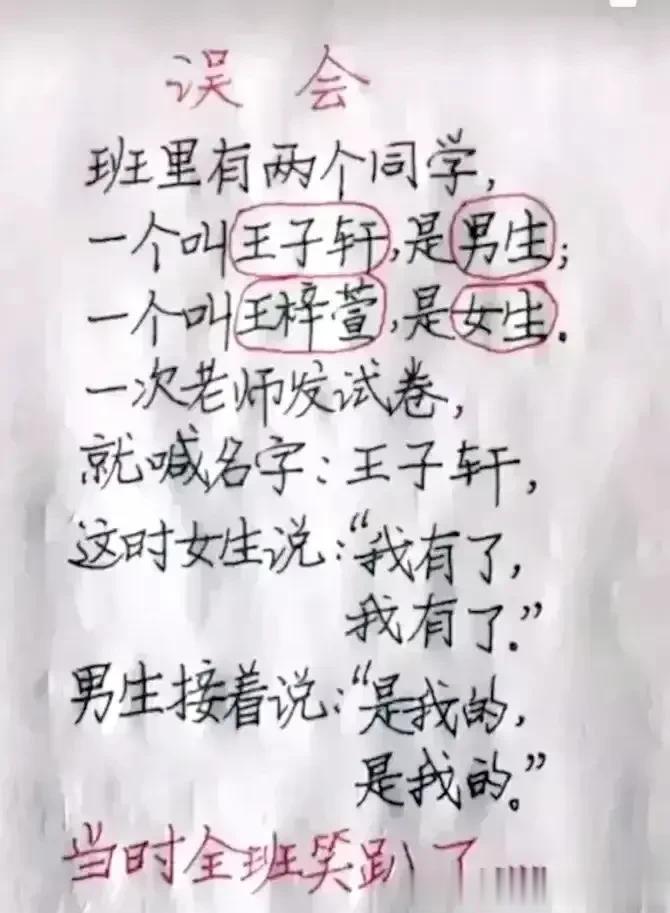 误 会
班里有两个同学,
一个叫王子轩,是男生;
一个叫王梓萱,是女生.
一次老师发试卷,
就喊名字:王子轩,
这时女生说:“我有了,
我有了.”
男生接着说:“是我的,
是我的.”
当时全班笑趴了......